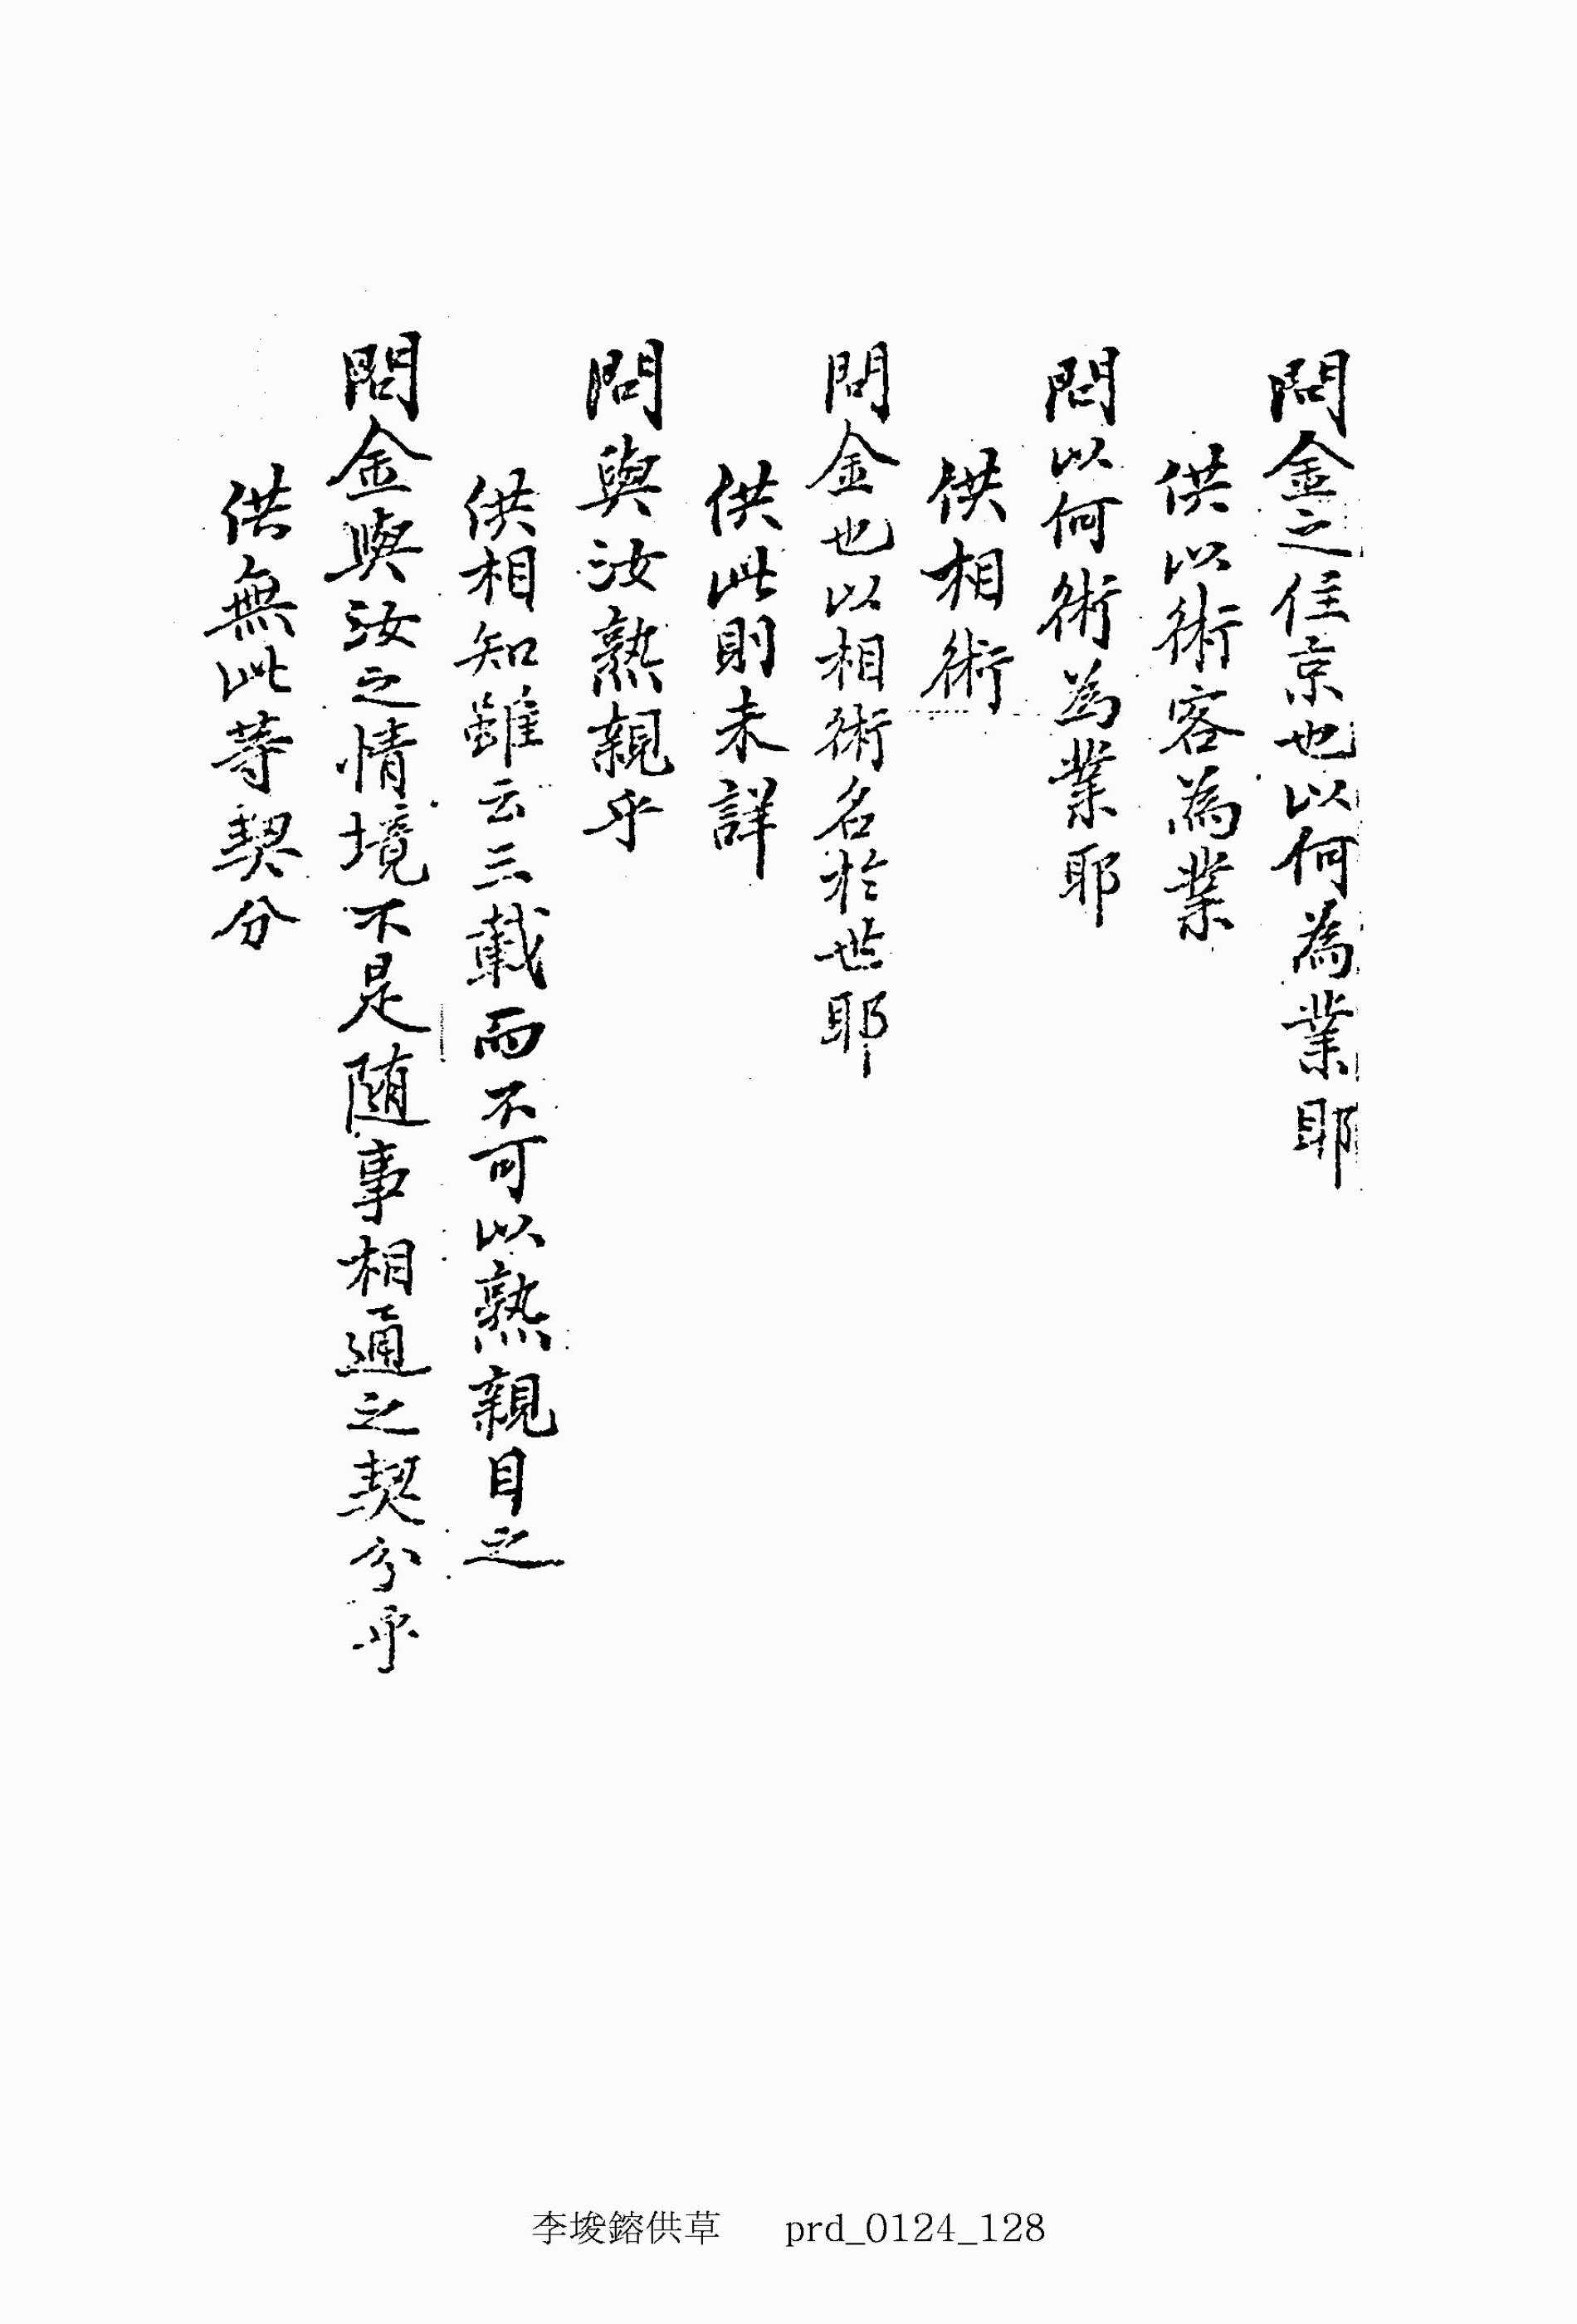 問金之住京也以何為業耶
供以術客為業
問以何術為業耶
供相術
問金也以相術名於世耶
供此則未詳
問與汝熟親乎
供相知雖云三載而不可以熟親目之
問金與汝之情境不是随事相通之契分乎
供無此等契分
李埈鎔供草 prd_0124_128